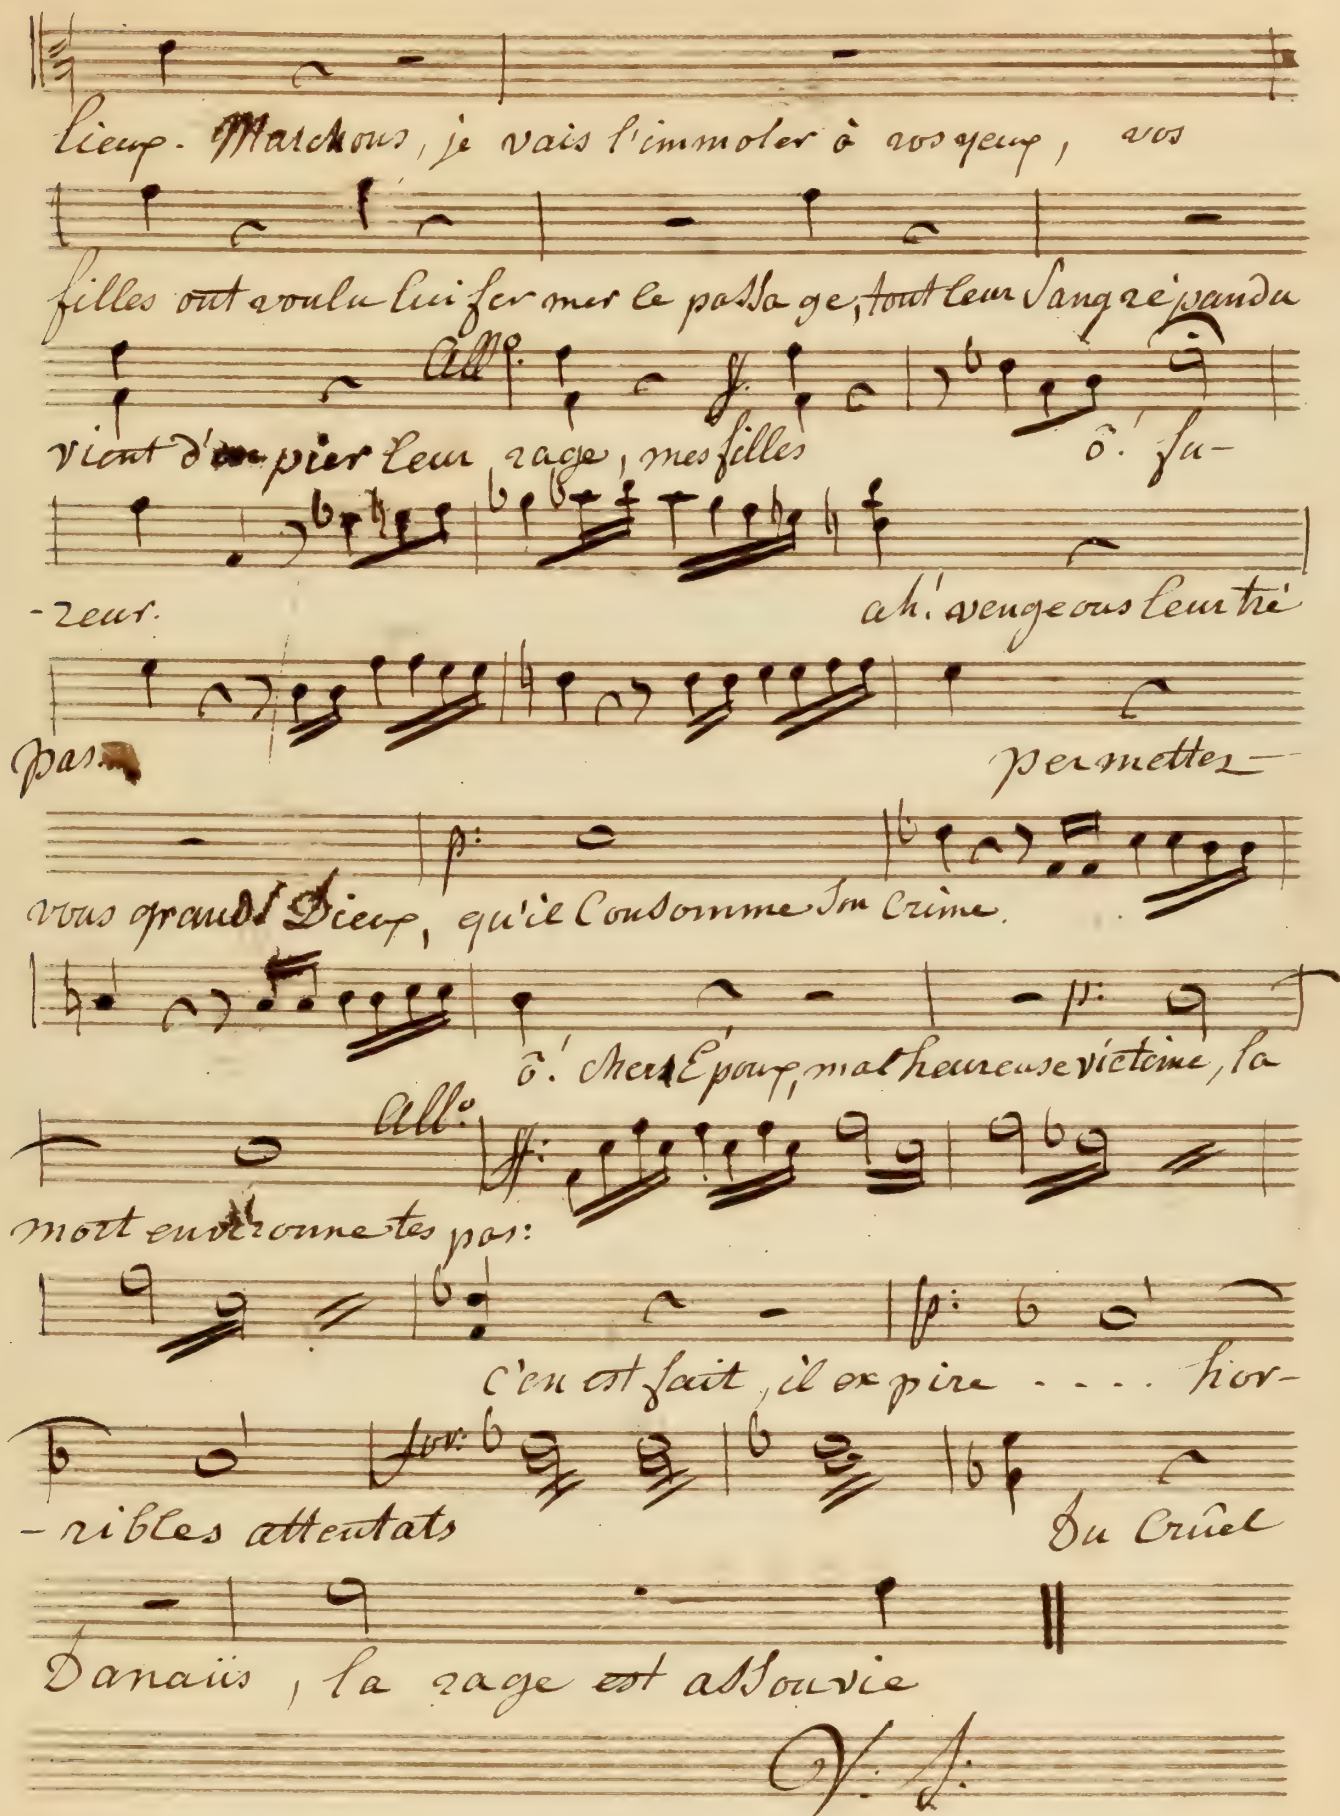 lieux. Marchons, je vais l'immoler à vos yeux, vos
filles ont voulu lui fermer le passage, tout leur sang répandu
All.º
vient d'expier leur rage, mes filles ô! fu-
-reur. ah! vengeons leur tré
pas. permettez-
p:
vous grands Dieux, qu'il Consomme son Crime.
p:
ô! chers Époux, malheureuse victime, la
All.º ff:
mort environne tes pas:
p:
c'en est fait, il expire .... hor-
for:
-ribles attentats Du Crüel
Danaüs, la rage est assouvie
V. S.